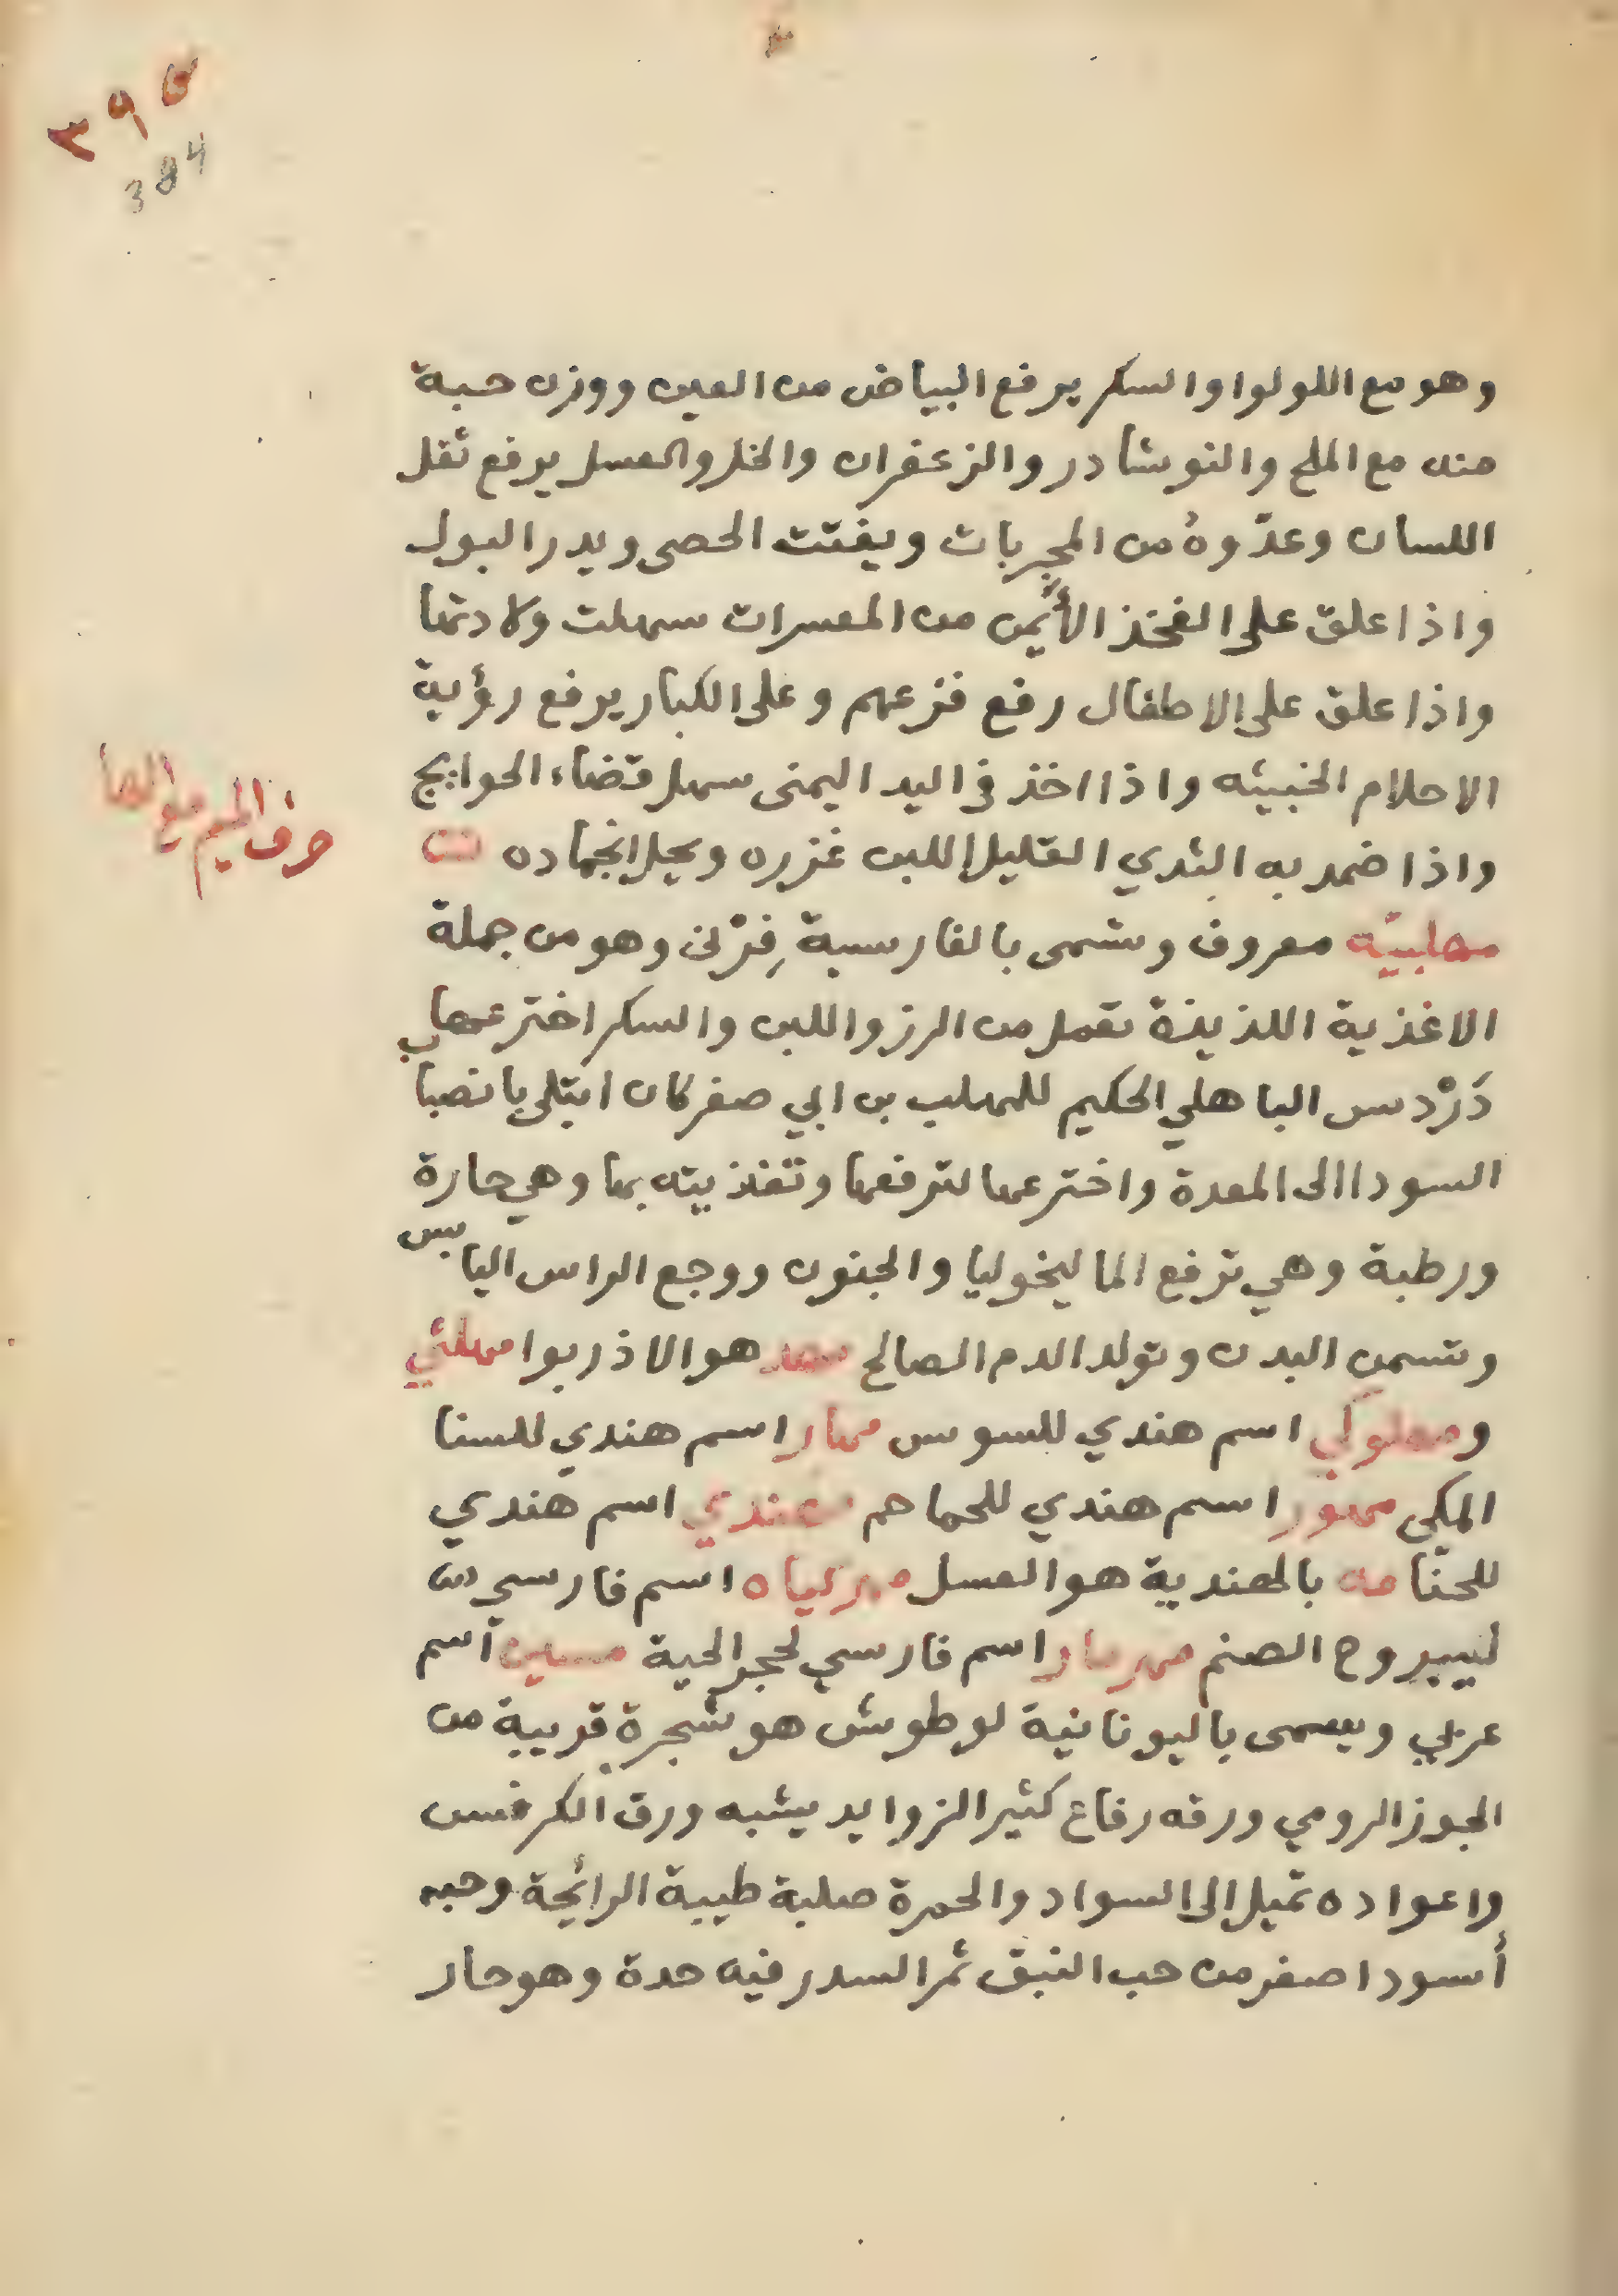 ٣٩٥
384
وهو مع اللولوا والسكر يرفع البياض من العين ووزن حبة
منه مع الملح والنوشادر والزعفران والخل والعسل يرفع ثقل
اللسان وعدّوهُ من المجربات ويفتت الحصى ويدر البول
واذا علق على الفخذ الأيمن من المعسرات سهلت ولادتها
واذا علق على الاطفال رفع فزعهم وعلى الكبار يرفع رؤية
الاحلام الخبيثه واذا اخذ في اليد اليمنى سهل قضاء الحوايج
واذا ضمد به الثدي القليل اللبن غزره ويحل انجماده
حرف الميم مع الهأ
مهلبيّه معروف وتسمى بالفارسية فِرْنى وهو من جملة
الاغذية اللذيذة تعمل من الرز واللبن والسكر اخترعها
دَرْدس الباهلي الحكيم للمهلب بن ابي صفر كان ابتلى بانصباب
السودا الى المعدة واخترعها لترفعها وتغذيته بها وهي حارة
ورطبة وهي ترفع الماليخوليا والجنون ووجع الراس اليابس
وتسمن البدن وتولد الدم الصالح مهد هو الاذربوا مهلثي
ومهلوكي اسم هندي للسوس مهار اسم هندي للسنا
المكي مهنور اسم هندي للحماحم مهندي اسم هندي
للحنّا مه بالهندية هو العسل مهر كياه اسم فارسي
ليبروح الصنم مهرمار اسم فارسي لحجر الحية ميسين اسم
عربي ويسمى باليونانية لوطوش هو شجرة قريبة من
الجوز الرومي ورقه رفاع كثير الزوايد يشبه ورق الكرفس
واعواده تميل الى السواد والحمرة صلبة طيبة الرائحة وحبه
أسود اصغر من حب النبق ثمر السدر فيه حدة وهو حار